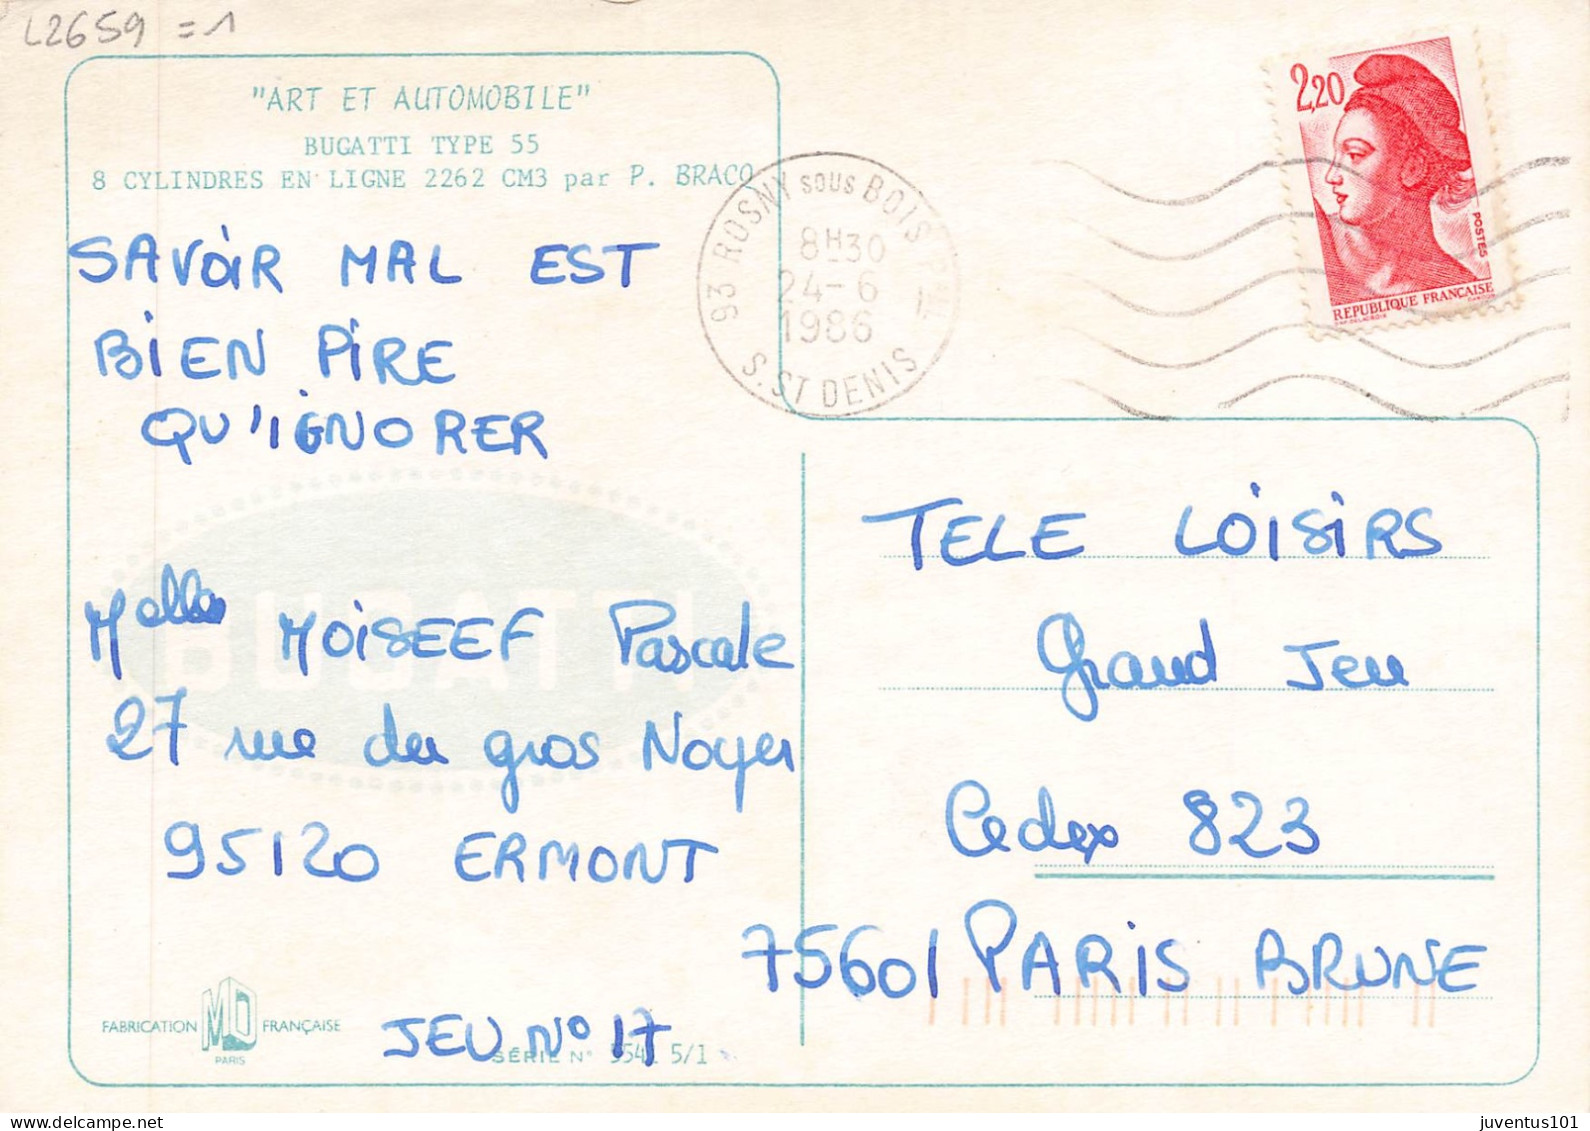 L2659 = 1
"ART ET AUTOMOBILE"
BUGATTI TYPE 55
8 CYLINDRES EN LIGNE 2262 CM3 par P. BRACQ
SAVOIR MAL EST
BIEN PIRE
QU'IGNORER
Melle MOISEEF Pascale
27 rue du gros Noyer
95120 ERMONT
JEU N° 17
BUGATTI
FABRICATION MD FRANÇAISE
PARIS
SÉRIE N° 5/1
93 ROSNY SOUS BOIS PAL
8H30
24-6
1986
S. ST DENIS
2,20
POSTES
REPUBLIQUE FRANÇAISE
TELE LOISIRS
Grand Jeu
Cedex 823
75601 PARIS BRUNE
juventus101